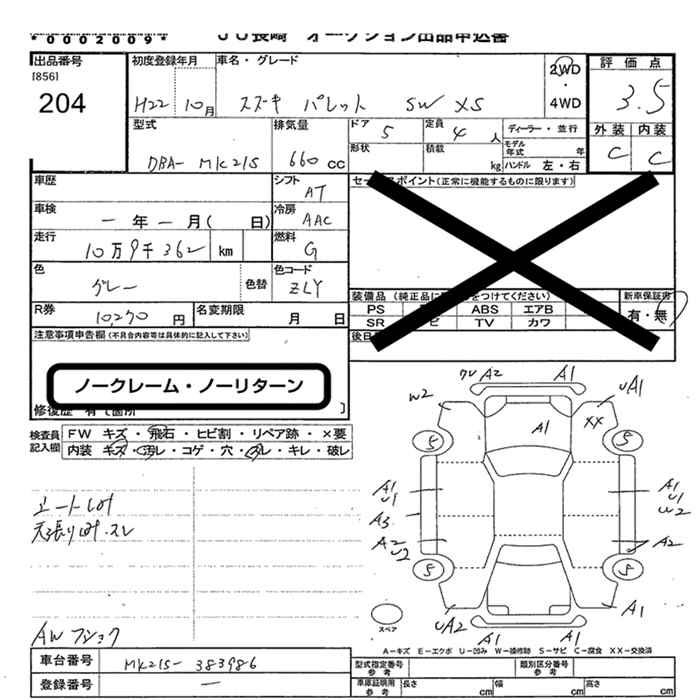 *0002009*
ＪＵ長崎 オークション出品申込書
出品番号
[856]
204
初度登録年月 車名・グレード
H22 10月 スズキ パレット SW XS
2WD
・
4WD
評価点
3.5
外装 内装
C C
型式 排気量 ドア 5 定員 4 人 ディーラー・並行
DBA- MK21S 660 cc
形状 積載 kg モデル年式 年
ハンドル 左・右
車歴 シフト AT
セー スポイント(正常に機能するものに限ります)
車検 ー年ー月( 日) 冷房 AAC
走行 10万9千362 km 燃料 G
色 グレー 色替 色コード ZLY
装備品(純正品に をつけてください) 新車保証書
PS ABS エアB 有・無
SR ビ TV カワ
R券 10,270 円 名変期限 月 日
後日
注意事項申告欄(不具合内容等は具体的に記入して下さい)
ノークレーム・ノーリターン
修復歴 有て箇所
検査員記入欄
FW キズ・飛石・ヒビ割・リペア跡・×要
内装 キズ・汚レ・コゲ・穴・スレ・キレ・破レ
天張り スレ
AW
A2 A1
W2 UA1
A1 XX
5 5
A1 A1
U1 U1
A3 W2
A2 A2
U2
5 5
UA2 A1
A1 A1
スペア
A－キズ E－エクボ U－凹み W－補修跡 S－サビ C－腐食 XX－交換済
車台番号 MK21S- 383986
登録番号 ー
型式指定番号 参考 類別区分番号 参考
車庫証明用 参考 長さ cm 幅 cm 高さ cm